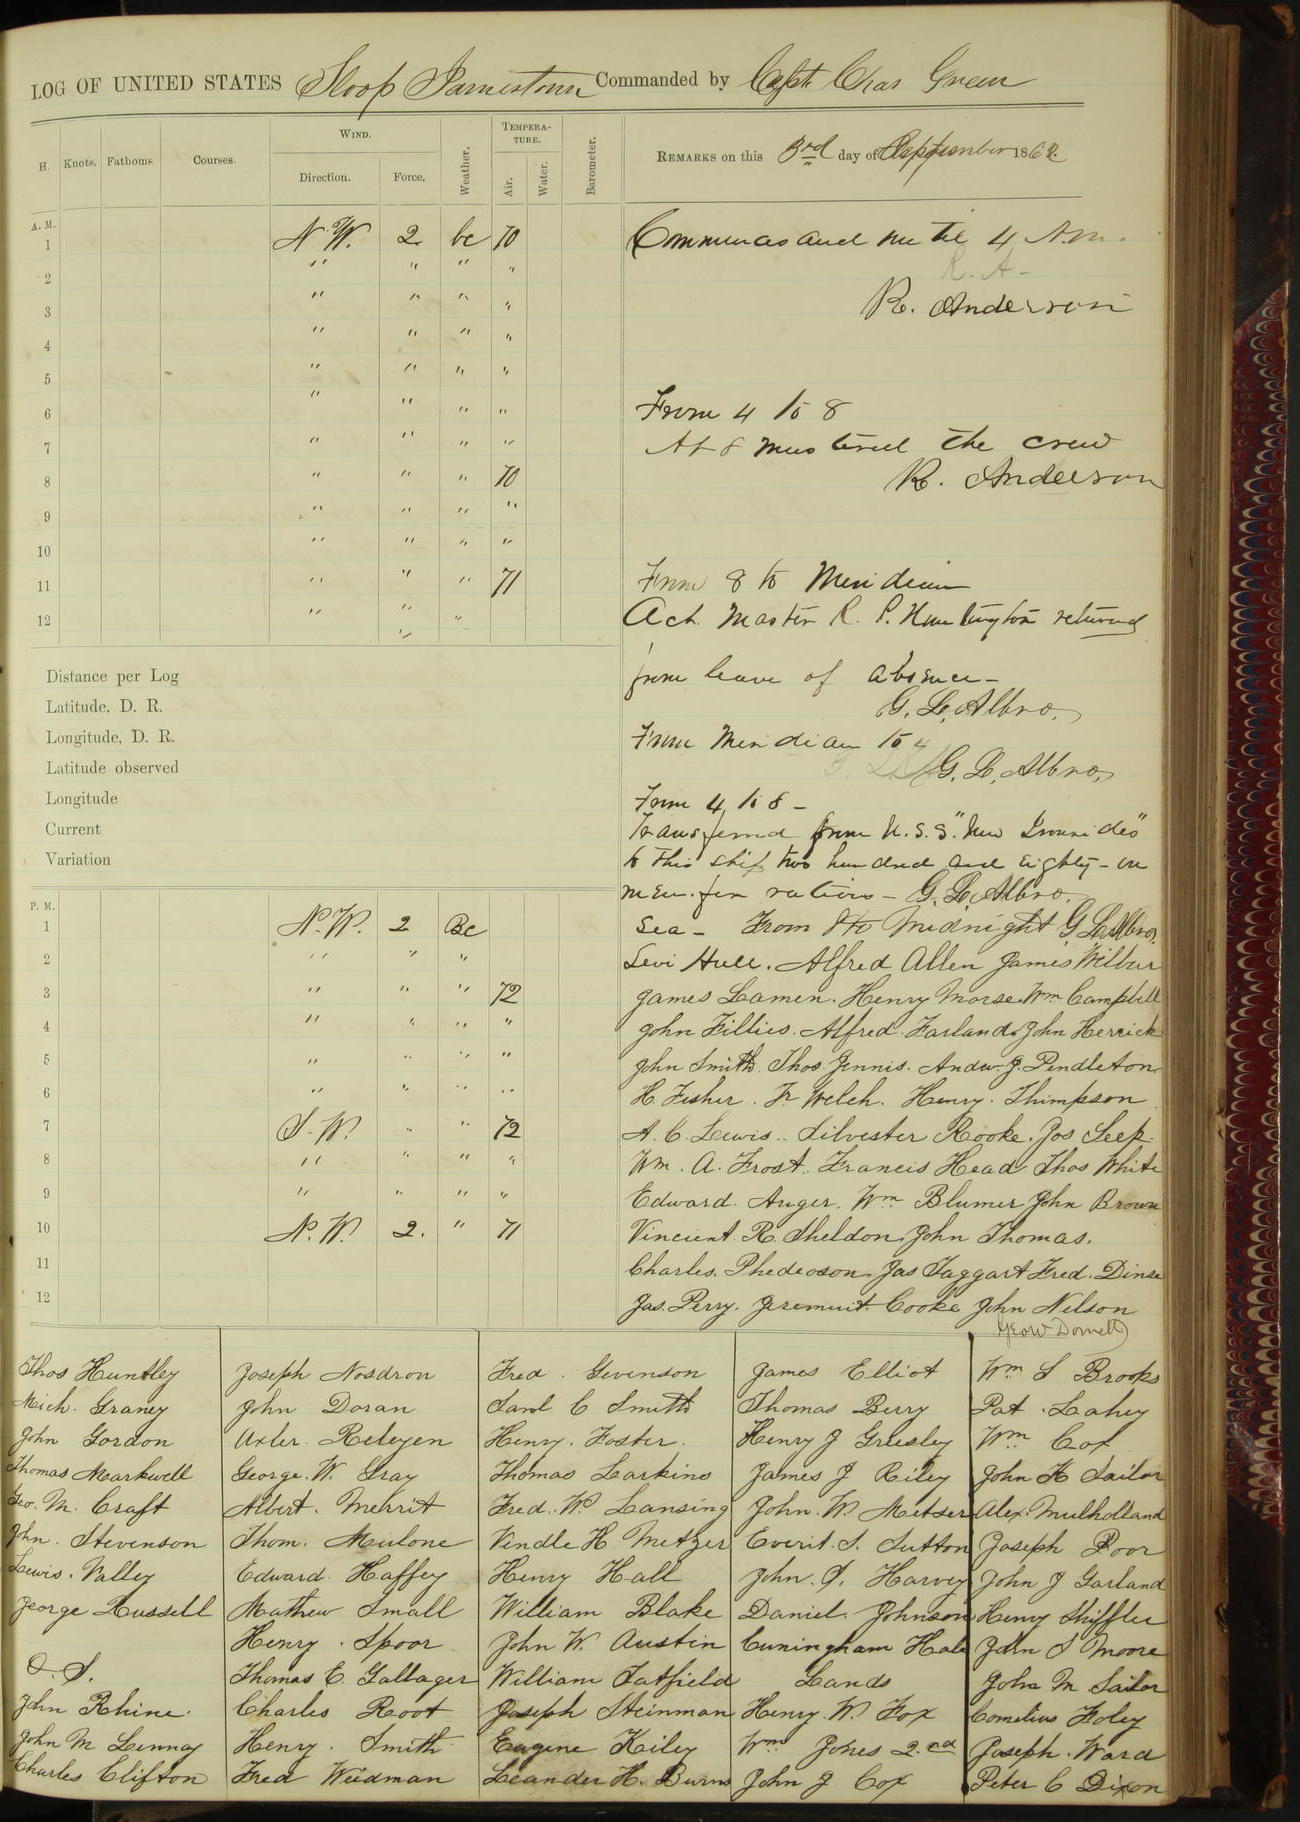 LOG OF UNITED STATES Sloop Jamestown Commanded by Capt. Chas Green
H. Knots. Fathoms Courses. WIND. Direction. Force. Weather. TEMPERATURE. Air. Water. Barometer.
REMARKS on this 3rd day of September 1862.
A. M.
1 N. W. 2 bc 70
2 " " " "
3 " " " "
4 " " " "
5 " " " "
6 " " " "
7 " " " "
8 " " " 70
9 " " " "
10 " " " "
11 " " " 71
12 " " "
"
Commences and until 4 A.m.
R. A-
R. Anderson
From 4 to 8
At 8 mustered the crew
R. Anderson
From 8 to Meridian
Act. Master R. P. Huntington returned
from leave of absence-
G. L. Albro.
From Meridian to 4
G. L. Albro,
From 4 to 8-
Transferred from U. S. S. "New Ironsides"
to this ship two hundred and Eighty-
men. for rations- G. L. Albro.
Distance per Log
Latitude, D. R.
Longitude, D. R.
Latitude observed
Longitude
Current
Variation
P. M.
1 N. W. 2 Bc
2 " " "
3 " " " 72
4 " " " "
5 " " " "
6 " " " "
7 S. W. " " 72
8 " " " "
9 " " " "
10 N. W. 2. " 71
11
12
Sea- From 8 to Midnight G L Albro,
Levi Hull. Alfred Allen James Wilbur
James Lamen. Henry Morse. Wm Campbell
John Fillies. Alfred. Farland. John Herrick
John Smith. Thos Jennis. Andw. J. Pendleton
H. Fisher. Fr Welch. Henry. Thimpson
A. C. Lewis.. Silvester Rooke. Jos Seek
Wm. A. Frost. Francis Head Thos White
Edward. Auger. Wm Blumer John Brown
Vincient R. Sheldon. John Thomas.
Charles. Jas Taggart Fred. Dinse
Jas. Perry. Cooke John Nelson
Geo W Dowell
Thos Huntley
Mich. Graney
John Gordon
Thomas Markwell
Geo. M. Craft
John. Stevenson
Lewis. Valley
George Russell
O. S.
John Rhine.
John M Lennay
Charles Clifton
Joseph Nosdron
John Doran
Axler Releyen
George. W. Gray
Albert. Merrit
Thom. Mulone
Edward Haffey
Mathew Small
Henry. Spoor
Thomas E. Gallager
Charles Root
Henry. Smith
Fred Weidman
Fred. Gevenson
Saml C Smith
Henry. Foster.
Thomas Larkins
Fred. W. Lansing
Vendle H Metzer
Henry Hall
William Blake
John W. Austin
William Tatfield
Joseph Steinman
Eugene Kiley
Leander H. Burns
James Elliot
Thomas Berry
Henry J Greesley
James J Riley
John. W. Metser
Everit. S. Sutton
John. S. Harvey
Daniel Johnson
Cuningham Hale
Lands
Henry. W. Fox
Wm Jones 2.nd
John J Cox
Wm S Brooks
Pat. Lahey
Wm Cox
John H Sailor
Alex. Mulholland
Joseph Poor
John J Garland
Henry Shiffler
John S Moore
John M Sailor
Cornelius Foley
Joseph. Ward
Peter C Dixon